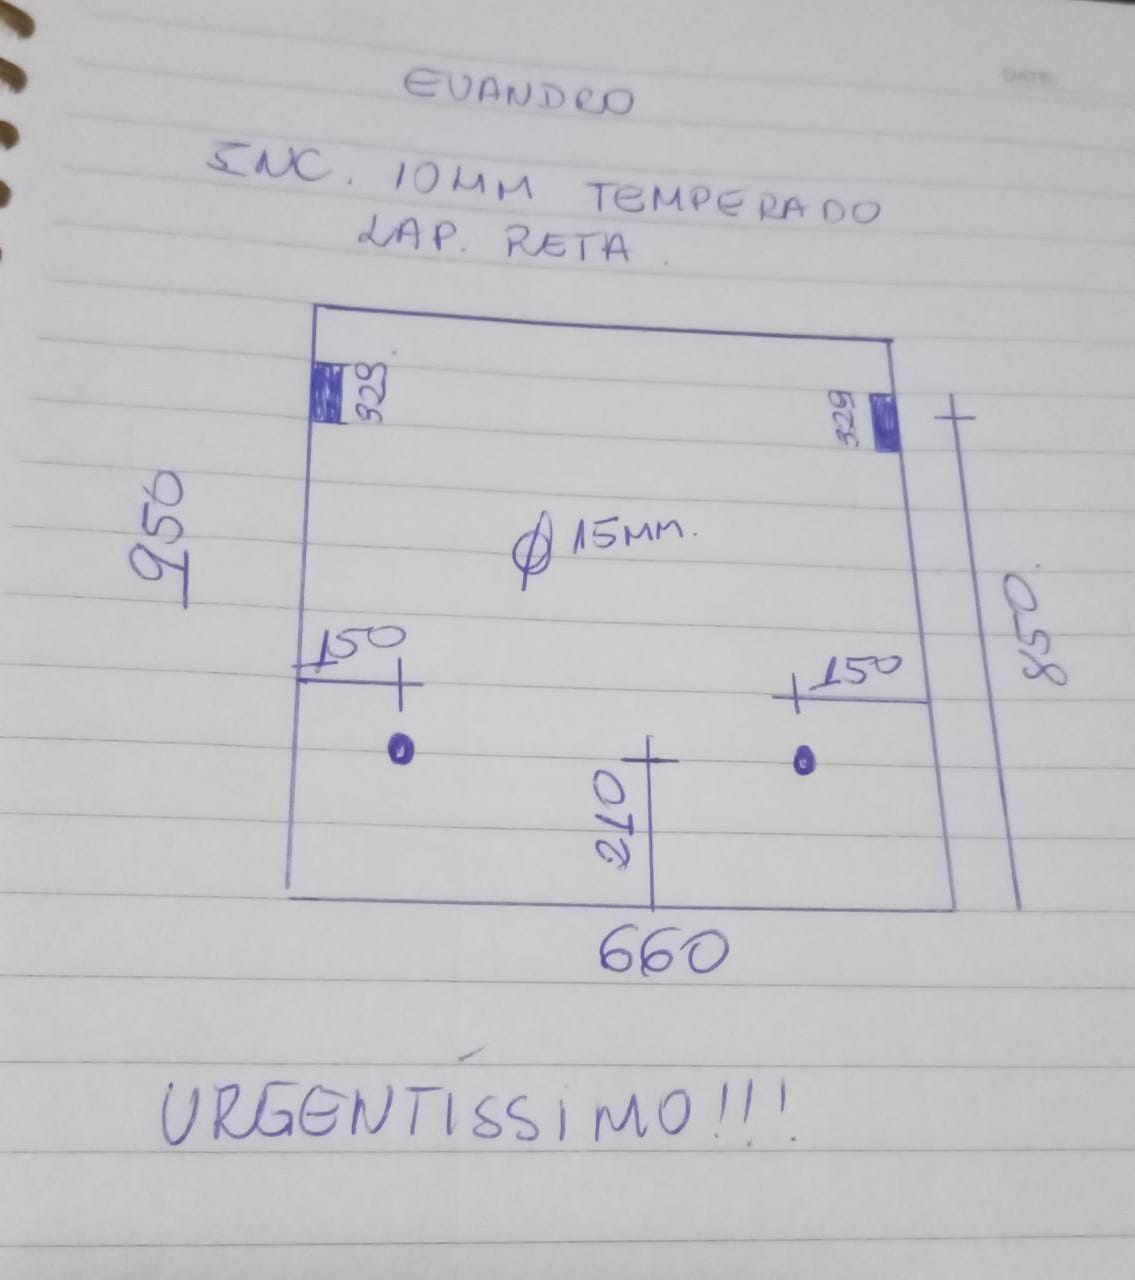 DATE:
EVANDRO
INC. 10MM TEMPERADO
LAP. RETA.
329.
329
950
Ø 15MM.
850.
150
150
210
660
URGENTÍSSIMO!!!